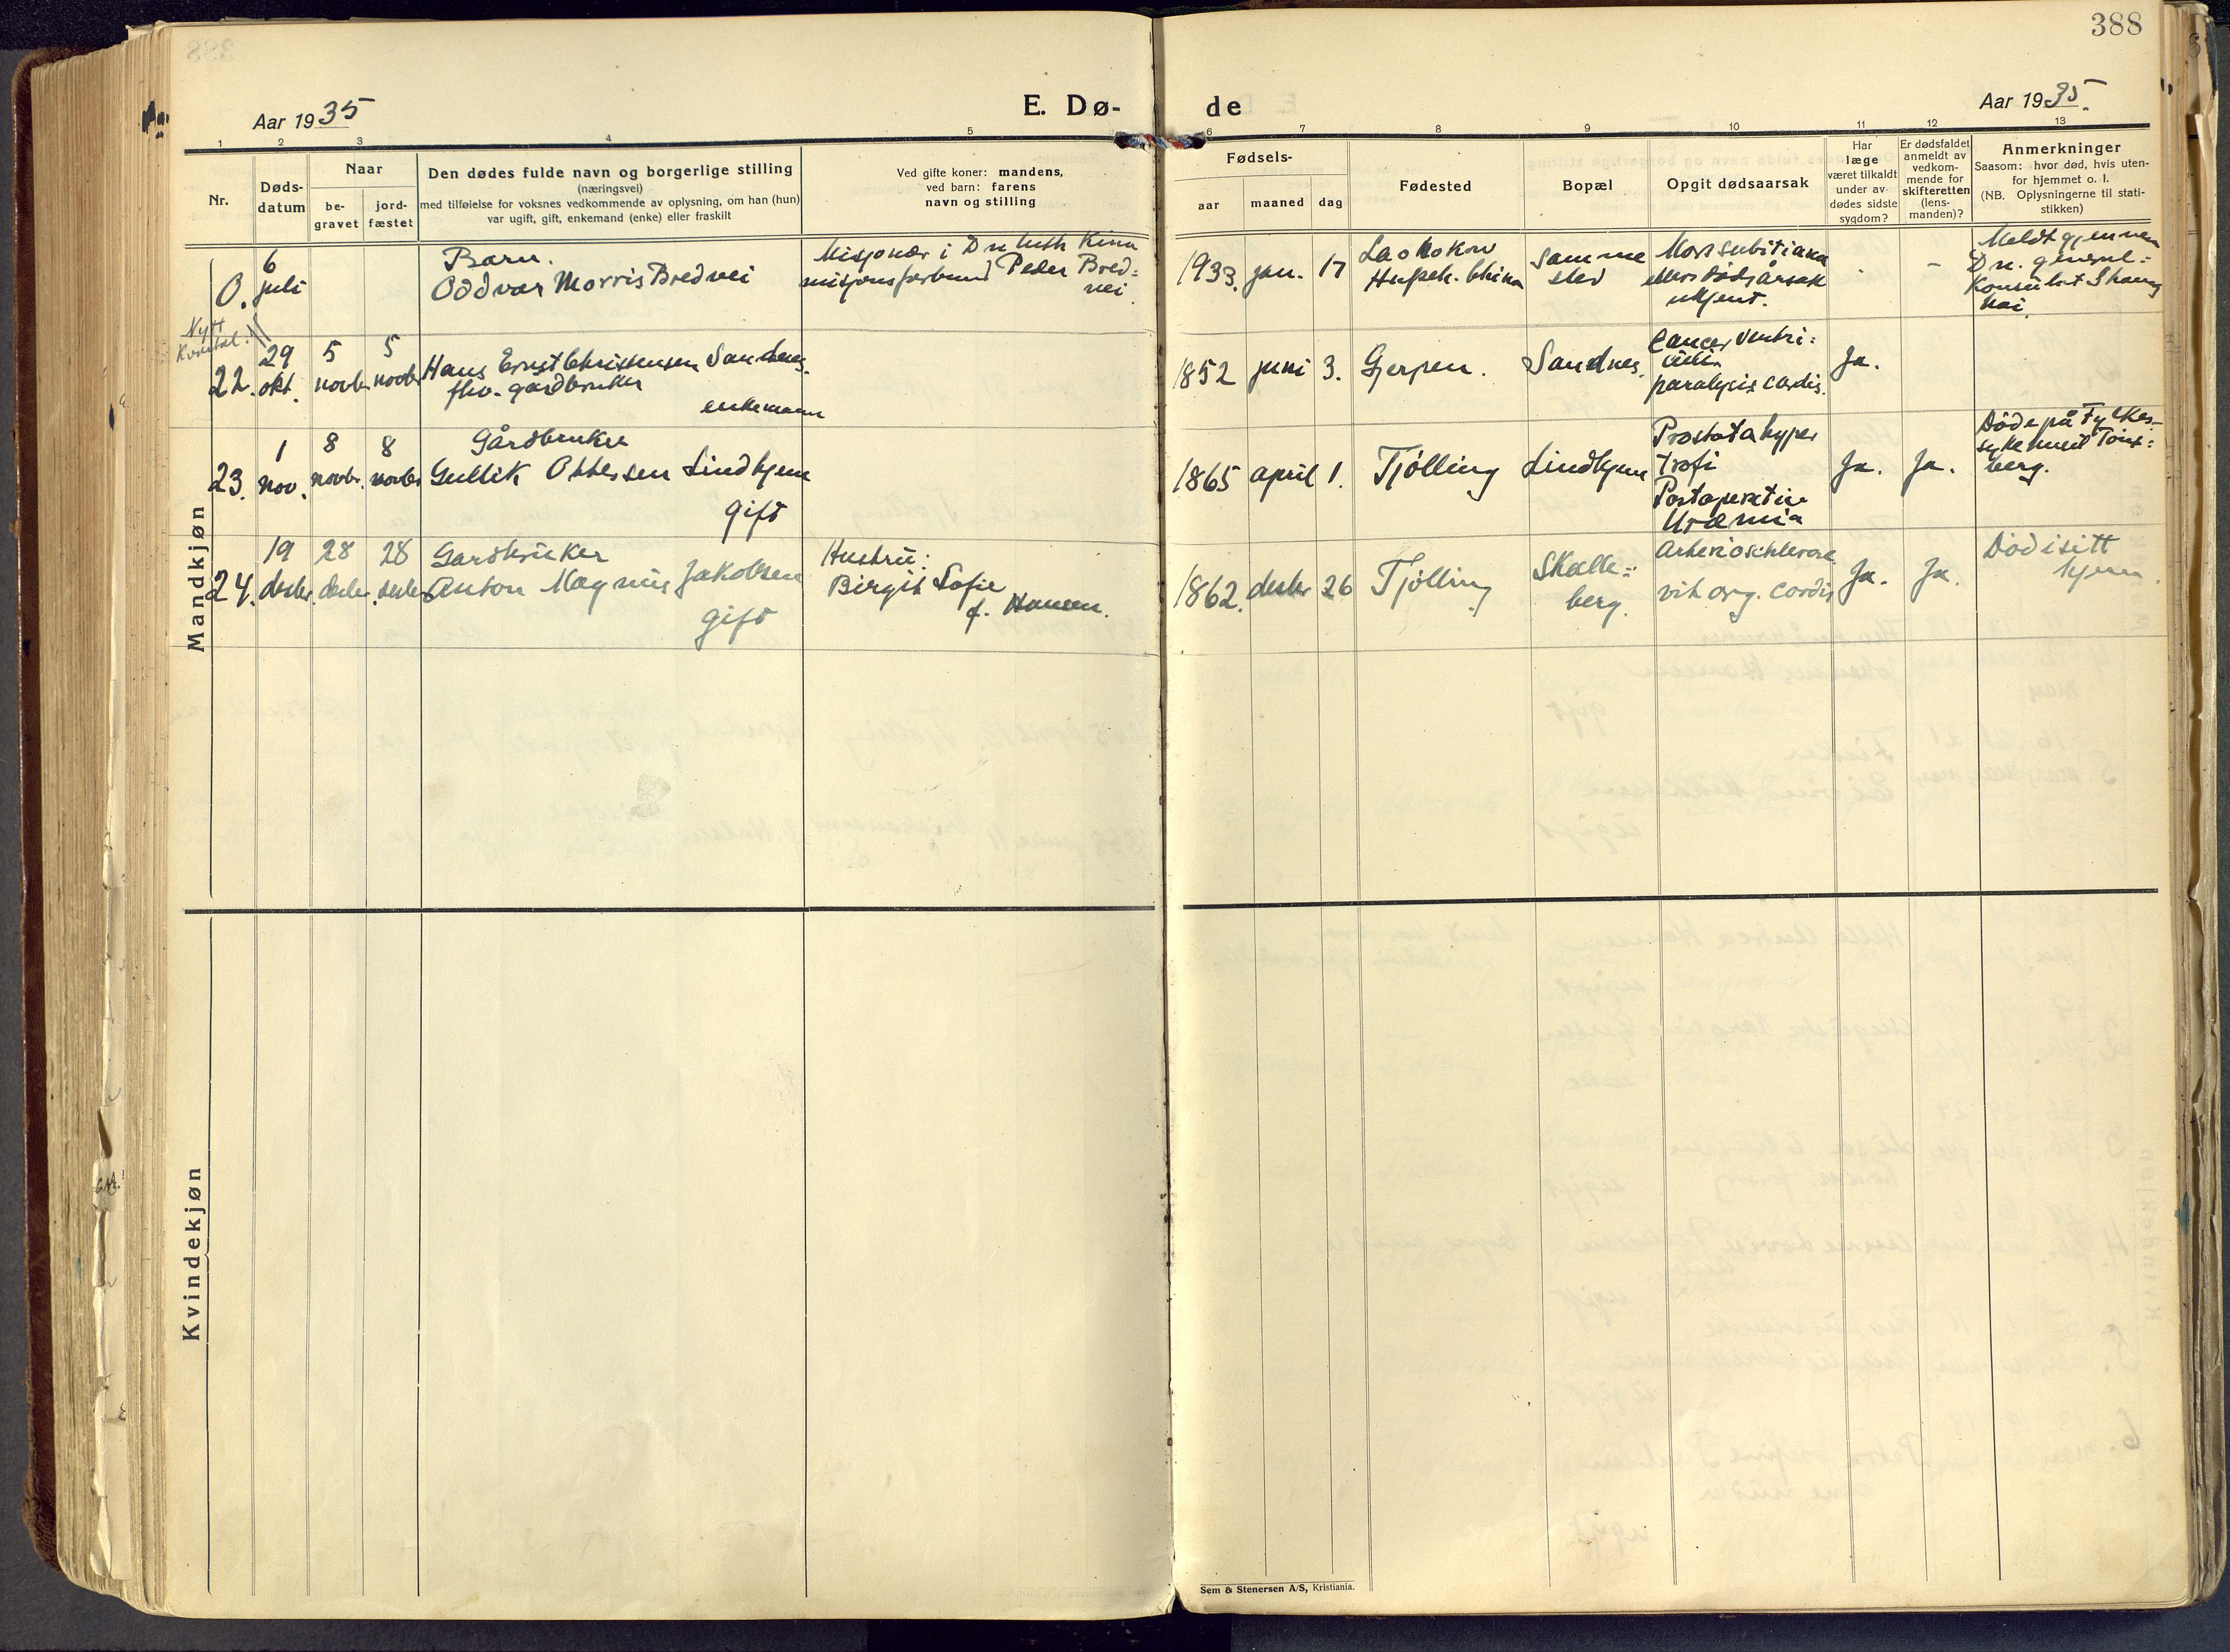 388
Aar 1935
E. Dø-
de
Aar 1935.
1 2 3 4 5 6 7 8 9 10 11 12 13
Nr.
Døds-
datum
Naar
be-
gravet
jord-
fæstet
Den dødes fulde navn og borgerlige stilling
(næringsvei)
med tilføielse for voksnes vedkommende av oplysning, om han (hun)
var ugift, gift, enkemand (enke) eller fraskilt
Ved gifte koner: mandens,
ved barn: farens
navn og stilling
Fødsels-
aar
maaned
dag
Fødested
Bopæl
Opgit dødsaarsak
Har
læge
været tilkaldt
under av-
dødes sidste
sygdom?
Er dødsfaldet
anmeldt av
vedkom-
mende for
skifteretten
(lens-
manden)?
Anmerkninger
Saasom: hvor død, hvis uten-
for hjemmet o. l.
(NB. Oplysningerne til stati-
stikken)
Mandkjøn
0.
6
juli
Barn.
Oddvar Morris Bredvei
Misjonær i Dn luth Kina
misjonsforbund Peder Bred=
vei.
1933. jan. 17
Laohokow
Hupeh. China
Samme
sted
Mors subitiana
ellers dødsårsak
ukjent.
-
Meldt gjennem
Dn. general=
konsulat Shang
hai.
Nytt
Kvartal.
22.
29
okt.
5
novbr
5
novbr
Hans Ernst Christensen Sandnes.
fhv. gardbruker
enkemann
1852 juni 3.
Gjerpen.
Sandnes.
Cancer ventri=
culi
paralysis cordis.
Ja.
23.
1
nov.
8
novbr.
8
novbr
Gårdbruker
Gullik Ottersen Lindhjem
gift
1865 april 1.
Tjølling
Lindhjem
Prostatahyper
trofi
Postoperativ
Uræmia
Ja.
Ja.
Døde på Fylkes-
sykehuset Tøns=
berg.
24.
19
desbr.
28
desbr.
28
desbr
Gardbruker
Anton Magnus Jakobsen
gift
Hustru:
Birgit Sofie
f. Hansen.
1862. desbr 26
Tjølling
Skalle=
berg.
Arterioschlerose
vit org. cordis
Ja.
Ja.
Død i sitt
hjem.
Kvindekjøn
Sem & Stenersen A/S, Kristiania.